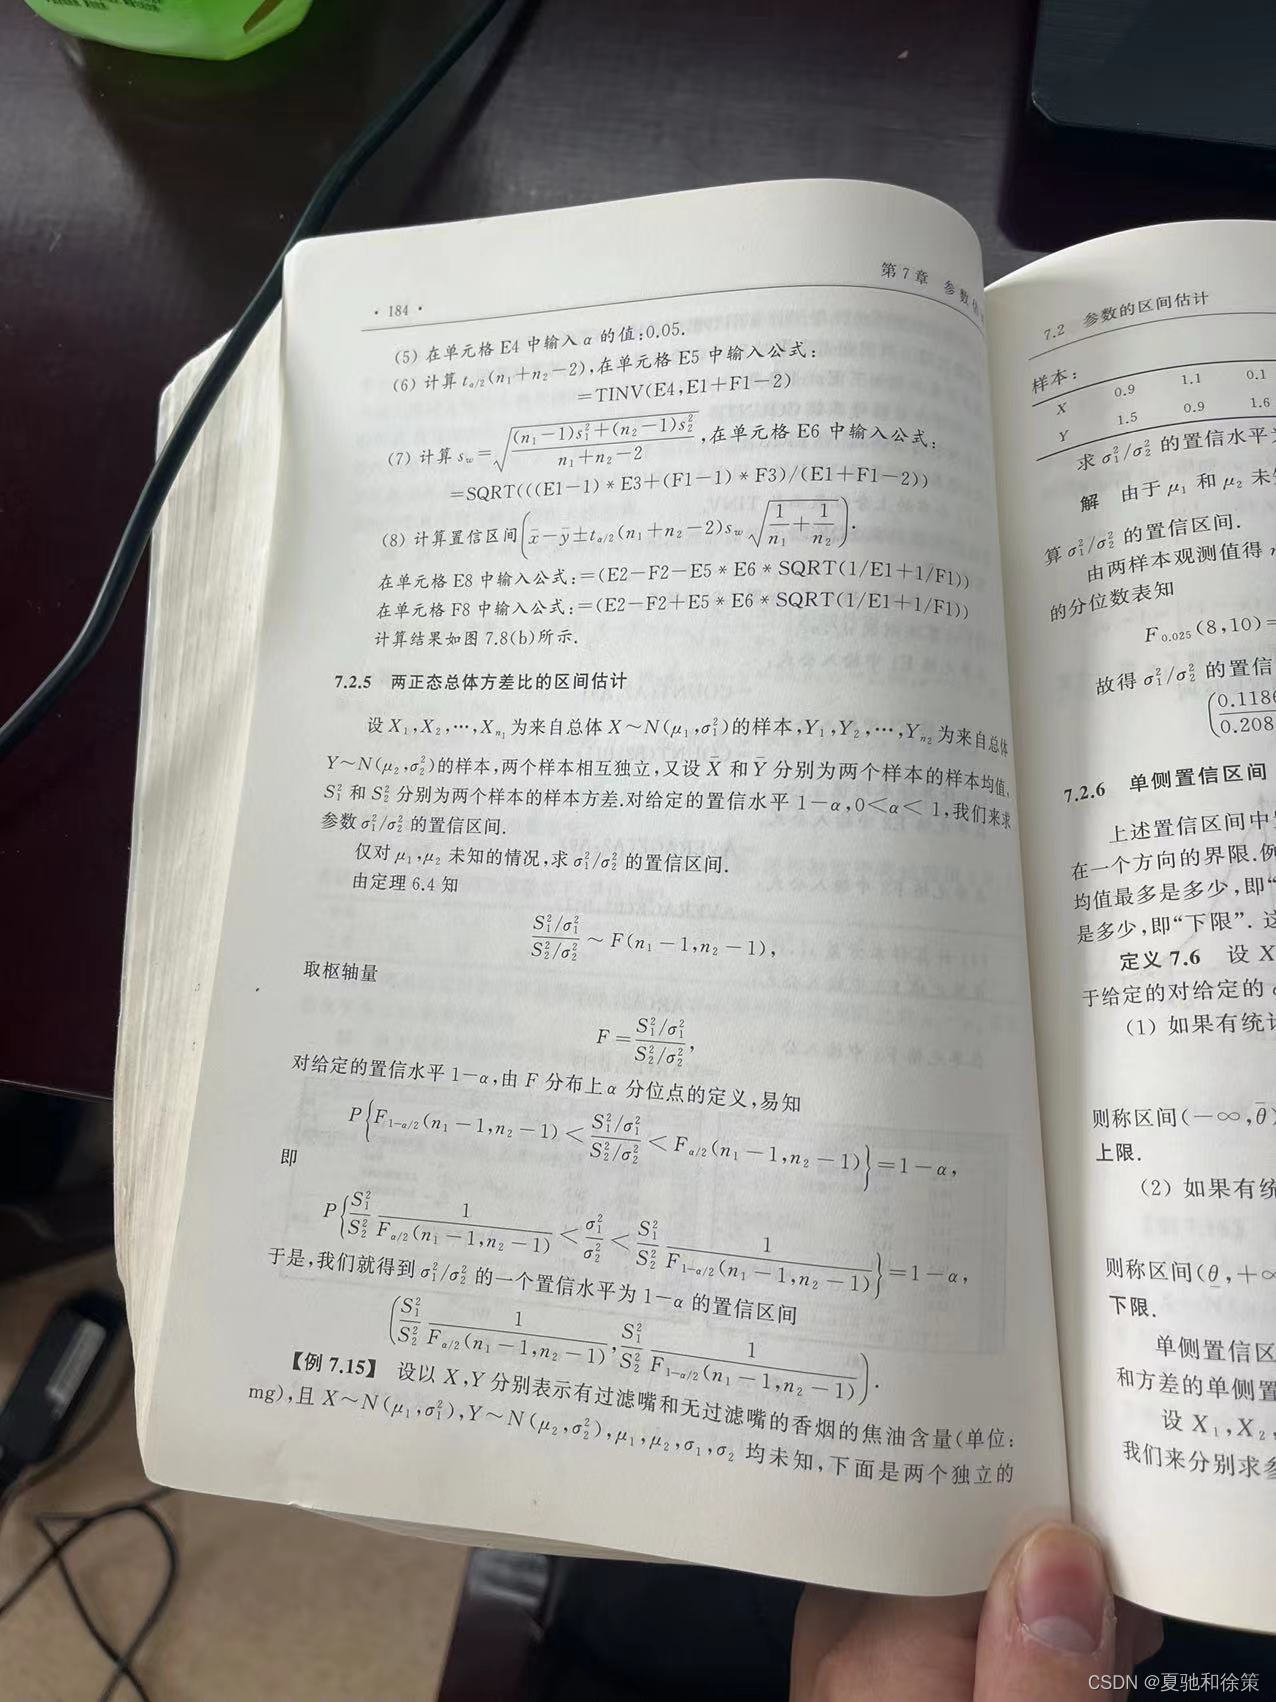 · 184 ·
第7章 参数
(5) 在单元格 E4 中输入 α 的值:0.05.
(6) 计算 t_{α/2}(n₁+n₂−2),在单元格 E5 中输入公式:
=TINV(E4,E1+F1−2)
(7) 计算 s_w=√(((n₁−1)s₁²+(n₂−1)s₂²)/(n₁+n₂−2)),在单元格 E6 中输入公式:
=SQRT(((E1−1)*E3+(F1−1)*F3)/(E1+F1−2))
(8) 计算置信区间(x̄−ȳ±t_{α/2}(n₁+n₂−2)s_w√(1/n₁+1/n₂)).
在单元格 E8 中输入公式:=(E2−F2−E5*E6*SQRT(1/E1+1/F1))
在单元格 F8 中输入公式:=(E2−F2+E5*E6*SQRT(1/E1+1/F1))
计算结果如图 7.8(b)所示.
7.2.5 两正态总体方差比的区间估计
设 X₁,X₂,⋯,X_{n₁} 为来自总体 X~N(μ₁,σ₁²)的样本,Y₁,Y₂,⋯,Y_{n₂}为来自总体
Y~N(μ₂,σ₂²)的样本,两个样本相互独立,又设 X̄ 和 Ȳ 分别为两个样本的样本均值,
S₁² 和 S₂² 分别为两个样本的样本方差.对给定的置信水平 1−α,0<α< 1,我们来求
参数 σ₁²/σ₂² 的置信区间.
仅对 μ₁,μ₂ 未知的情况,求 σ₁²/σ₂² 的置信区间.
由定理 6.4 知
(S₁²/σ₁²)/(S₂²/σ₂²) ~ F(n₁−1,n₂−1),
取枢轴量
F=(S₁²/σ₁²)/(S₂²/σ₂²),
对给定的置信水平 1−α,由 F 分布上 α 分位点的定义,易知
P{F_{1−α/2}(n₁−1,n₂−1)<(S₁²/σ₁²)/(S₂²/σ₂²)<F_{α/2}(n₁−1,n₂−1)}=1−α,
即
P{S₁²/S₂² 1/F_{α/2}(n₁−1,n₂−1)<σ₁²/σ₂²<S₁²/S₂² 1/F_{1−α/2}(n₁−1,n₂−1)}=1−α,
于是,我们就得到 σ₁²/σ₂² 的一个置信水平为 1−α 的置信区间
(S₁²/S₂² 1/F_{α/2}(n₁−1,n₂−1),S₁²/S₂² 1/F_{1−α/2}(n₁−1,n₂−1)).
【例 7.15】 设以 X,Y 分别表示有过滤嘴和无过滤嘴的香烟的焦油含量(单位:
mg),且 X~N(μ₁,σ₁²),Y~N(μ₂,σ₂²),μ₁,μ₂,σ₁,σ₂ 均未知,下面是两个独立的
7.2 参数的区间估计
样本:
X 0.9 1.1 0.1
Y 1.5 0.9 1.6
求 σ₁²/σ₂² 的置信水平
解 由于 μ₁ 和 μ₂ 未
算 σ₁²/σ₂² 的置信区间.
由两样本观测值得
的分位数表知
F₀.₀₂₅(8,10)=
故得 σ₁²/σ₂² 的置信
(0.118
0.208
7.2.6 单侧置信区间
上述置信区间中
在一个方向的界限.例
均值最多是多少,即“
是多少,即“下限”. 这
定义 7.6 设 X
于给定的对给定的
(1) 如果有统计
则称区间(−∞,θ̄)
上限.
(2) 如果有统
则称区间(θ̲,+∞
下限.
单侧置信区
和方差的单侧置
设 X₁,X₂,
我们来分别求参
CSDN @夏驰和徐策